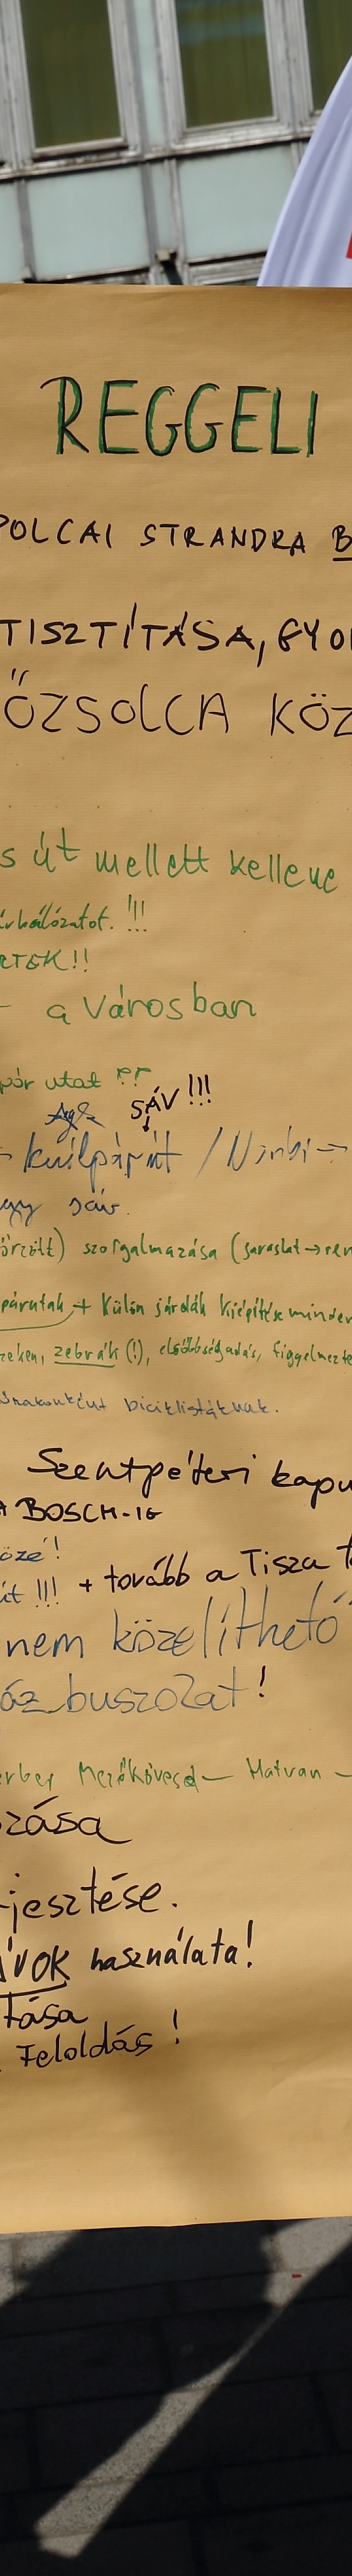 REGGELI
POLCAI STRANDRA B
TISZTÍTÁSA, GYO
ŐZSOLCA KÖZ
s út mellett kellene
a Városban
pár utat ??
SÁV !!!
sáv.
szorgalmazása (javaslat → ren
párutak + Külön járdák kiépítése minden
zebrák (!), elsőbbségadás, figyelmezte
biciklistáknak.
Szentpéteri kapu
A BOSCH-IG
öze!
út !!! + tovább a Tisza
nem közelíthető
áz buszozat!
Mezőkövesd — Hatvan —
zása
jesztése.
ÁVOK használata!
tása
Feloldás!